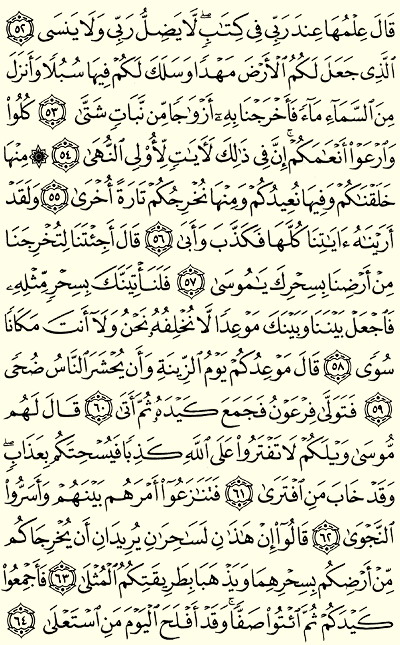 قَالَ عِلْمُهَا عِندَ رَبِّى فِى كِتَٰبٍ ۖ لَّا يَضِلُّ رَبِّى وَلَا يَنسَى ٥٢
ٱلَّذِى جَعَلَ لَكُمُ ٱلْأَرْضَ مَهْدًا وَسَلَكَ لَكُمْ فِيهَا سُبُلًا وَأَنزَلَ
مِنَ ٱلسَّمَآءِ مَآءً فَأَخْرَجْنَا بِهِۦٓ أَزْوَٰجًا مِّن نَّبَاتٍ شَتَّىٰ ٥٣ كُلُوا۟
وَٱرْعَوْا۟ أَنْعَٰمَكُمْ ۗ إِنَّ فِى ذَٰلِكَ لَءَايَٰتٍ لِّأُو۟لِى ٱلنُّهَىٰ ٥٤ ۞ مِنْهَا
خَلَقْنَٰكُمْ وَفِيهَا نُعِيدُكُمْ وَمِنْهَا نُخْرِجُكُمْ تَارَةً أُخْرَىٰ ٥٥ وَلَقَدْ
أَرَيْنَٰهُ ءَايَٰتِنَا كُلَّهَا فَكَذَّبَ وَأَبَىٰ ٥٦ قَالَ أَجِئْتَنَا لِتُخْرِجَنَا
مِنْ أَرْضِنَا بِسِحْرِكَ يَٰمُوسَىٰ ٥٧ فَلَنَأْتِيَنَّكَ بِسِحْرٍ مِّثْلِهِۦ
فَٱجْعَلْ بَيْنَنَا وَبَيْنَكَ مَوْعِدًا لَّا نُخْلِفُهُۥ نَحْنُ وَلَآ أَنتَ مَكَانًا
سُوًى ٥٨ قَالَ مَوْعِدُكُمْ يَوْمُ ٱلزِّينَةِ وَأَن يُحْشَرَ ٱلنَّاسُ ضُحًى
٥٩ فَتَوَلَّىٰ فِرْعَوْنُ فَجَمَعَ كَيْدَهُۥ ثُمَّ أَتَىٰ ٦٠ قَالَ لَهُم
مُّوسَىٰ وَيْلَكُمْ لَا تَفْتَرُوا۟ عَلَى ٱللَّهِ كَذِبًا فَيُسْحِتَكُم بِعَذَابٍ ۖ
وَقَدْ خَابَ مَنِ ٱفْتَرَىٰ ٦١ فَتَنَٰزَعُوٓا۟ أَمْرَهُم بَيْنَهُمْ وَأَسَرُّوا۟
ٱلنَّجْوَىٰ ٦٢ قَالُوٓا۟ إِنْ هَٰذَٰنِ لَسَٰحِرَٰنِ يُرِيدَانِ أَن يُخْرِجَاكُم
مِّنْ أَرْضِكُم بِسِحْرِهِمَا وَيَذْهَبَا بِطَرِيقَتِكُمُ ٱلْمُثْلَىٰ ٦٣ فَأَجْمِعُوا۟
كَيْدَكُمْ ثُمَّ ٱئْتُوا۟ صَفًّا ۚ وَقَدْ أَفْلَحَ ٱلْيَوْمَ مَنِ ٱسْتَعْلَىٰ ٦٤